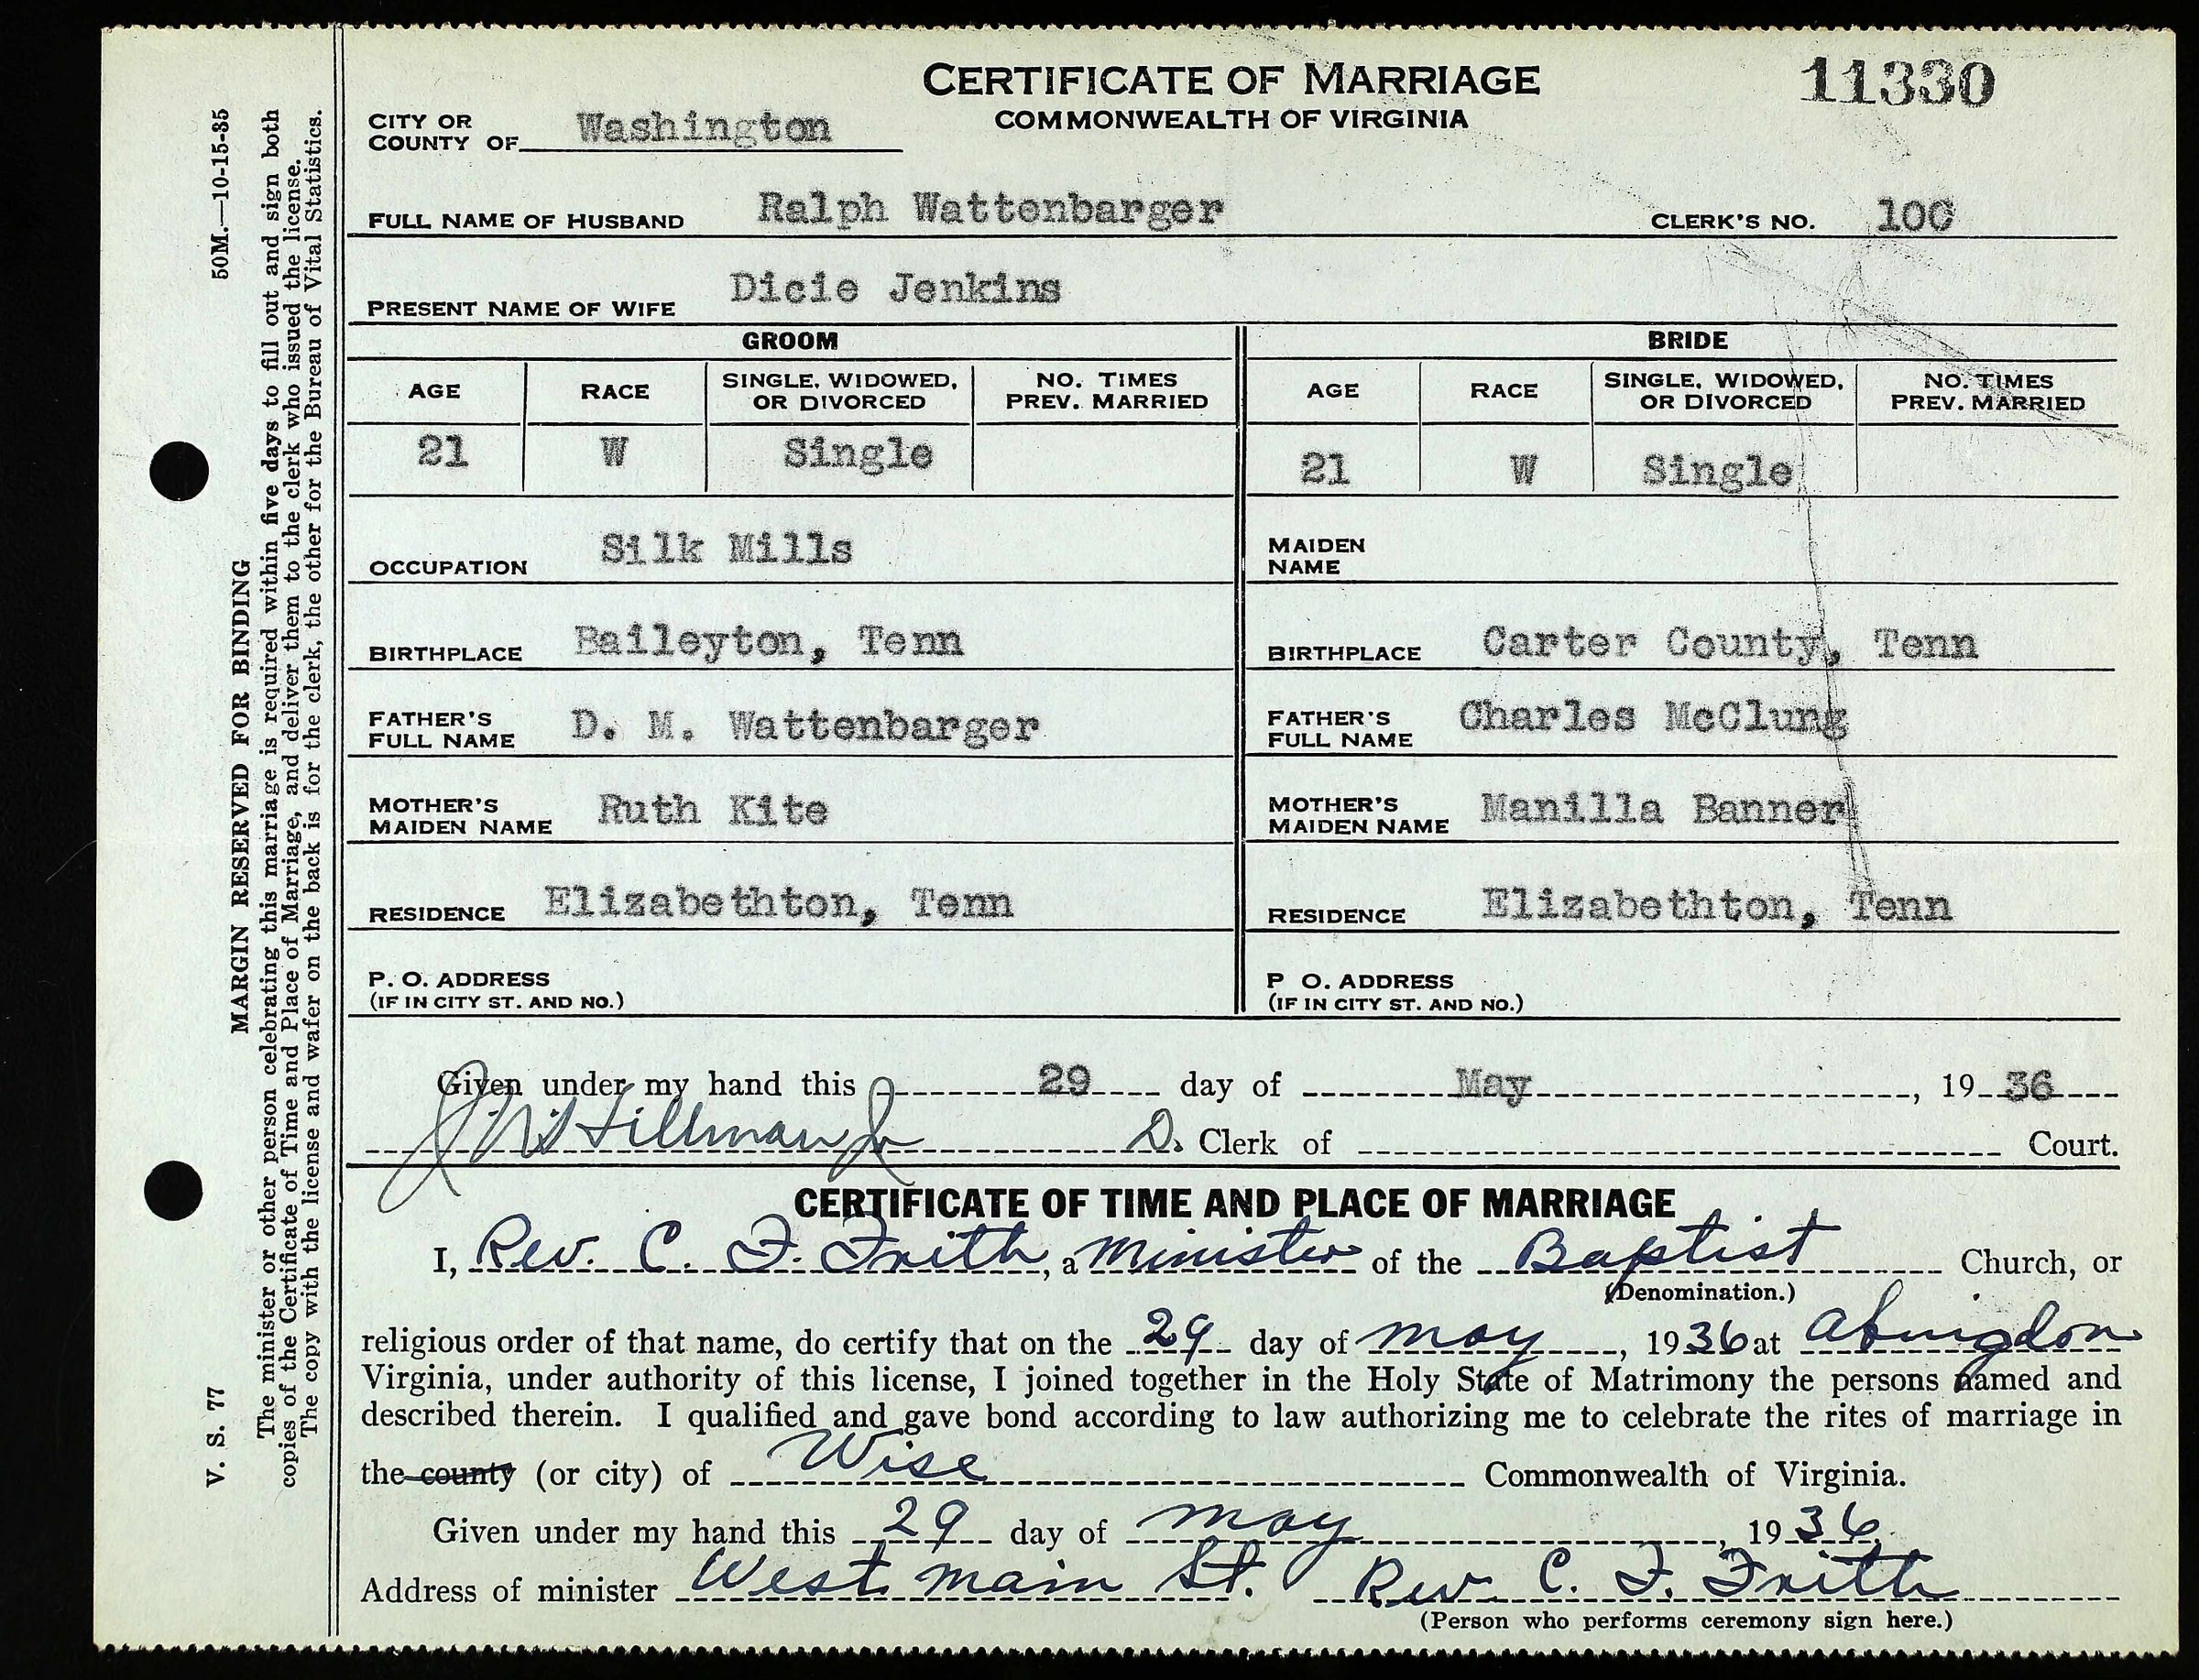 CERTIFICATE OF MARRIAGE
11330
COMMONWEALTH OF VIRGINIA
CITY OR
COUNTY OF Washington
FULL NAME OF HUSBAND Ralph Wattenbarger CLERK'S NO. 100
PRESENT NAME OF WIFE Dicie Jenkins
GROOM BRIDE
AGE RACE SINGLE, WIDOWED, OR DIVORCED NO. TIMES PREV. MARRIED AGE RACE SINGLE, WIDOWED, OR DIVORCED NO. TIMES PREV. MARRIED
21 W Single 21 W Single
OCCUPATION Silk Mills MAIDEN NAME
BIRTHPLACE Baileyton, Tenn BIRTHPLACE Carter County, Tenn
FATHER'S FULL NAME D. M. Wattenbarger FATHER'S FULL NAME Charles McClung
MOTHER'S MAIDEN NAME Ruth Kite MOTHER'S MAIDEN NAME Manilla Banner
RESIDENCE Elizabethton, Tenn RESIDENCE Elizabethton, Tenn
P. O. ADDRESS (IF IN CITY ST. AND NO.) P O. ADDRESS (IF IN CITY ST. AND NO.)
Given under my hand this 29 day of May, 1936
Hillman Jr D. Clerk of Court.
CERTIFICATE OF TIME AND PLACE OF MARRIAGE
I, Rev. C. F. Frith, a Minister of the Baptist Church, or
(Denomination.)
religious order of that name, do certify that on the 29 day of May, 1936 at Abingdon
Virginia, under authority of this license, I joined together in the Holy State of Matrimony the persons named and
described therein. I qualified and gave bond according to law authorizing me to celebrate the rites of marriage in
the county (or city) of Wise Commonwealth of Virginia.
Given under my hand this 29 day of May, 1936
Address of minister West Main St. Rev. C. F. Frith
(Person who performs ceremony sign here.)
V. S. 77 MARGIN RESERVED FOR BINDING 50M.—10-15-35
The minister or other person celebrating this marriage is required within five days to fill out and sign both
copies of the Certificate of Time and Place of Marriage, and deliver them to the clerk who issued the license.
The copy with the license and wafer on the back is for the clerk, the other for the Bureau of Vital Statistics.